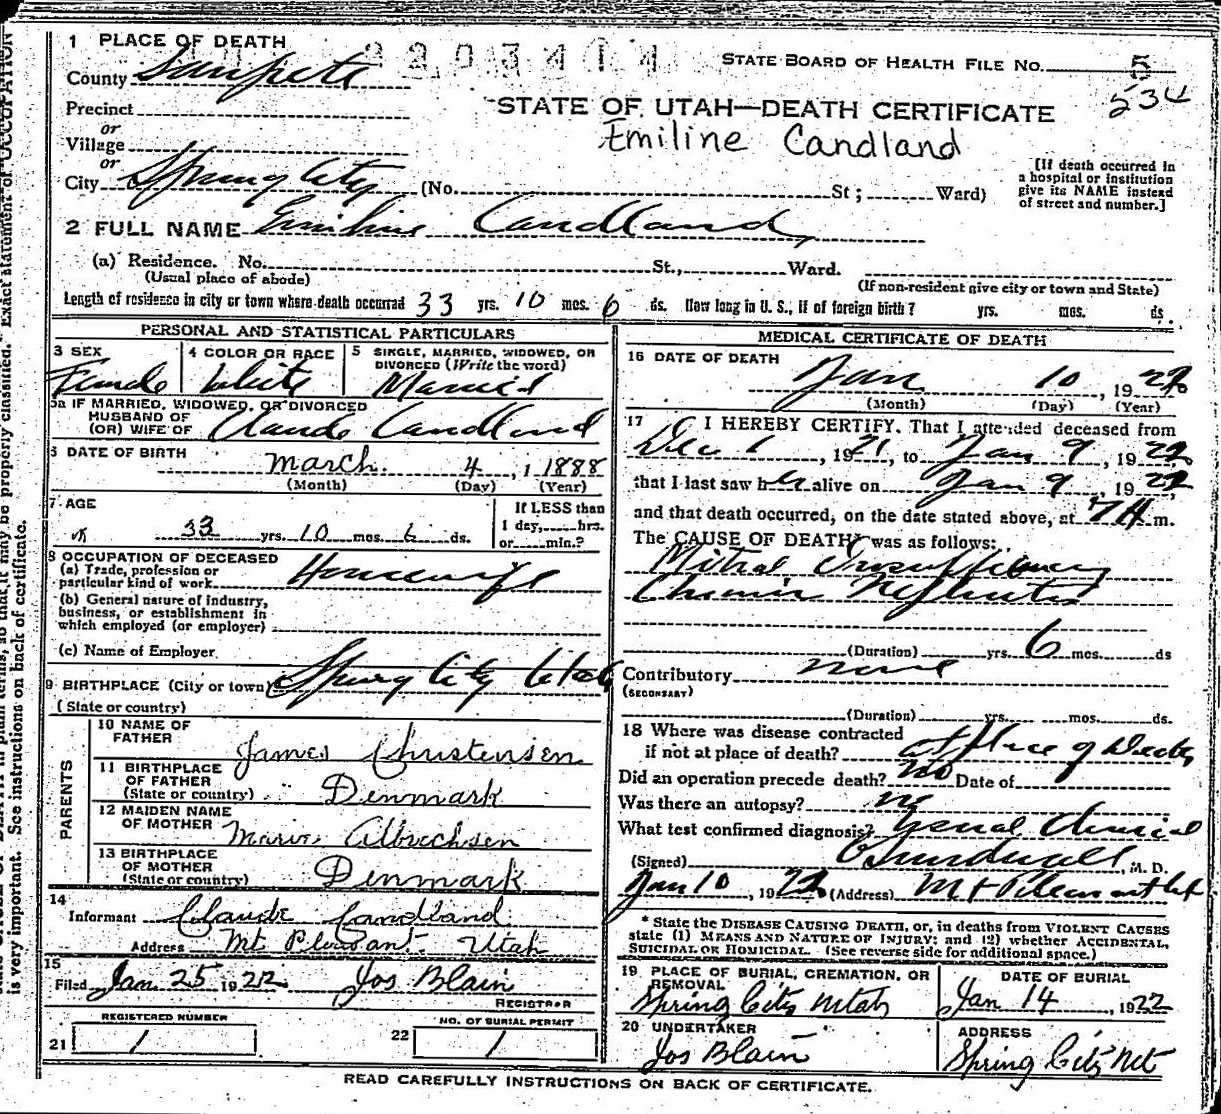 1 PLACE OF DEATH
County Sanpete
STATE BOARD OF HEALTH FILE No. 5
534
Precinct
or
Village
or
City Spring City (No. St; Ward)
STATE OF UTAH—DEATH CERTIFICATE
Emiline Candland
[If death occurred in
a hospital or institution
give its NAME instead
of street and number.]
2 FULL NAME Emiline Candland
(a) Residence. No. St., Ward.
(Usual place of abode)
(If non-resident give city or town and State)
Length of residence in city or town where death occurred 33 yrs. 10 mos. 6 ds. How long in U. S., if of foreign birth? yrs. mos. ds.
PERSONAL AND STATISTICAL PARTICULARS
3 SEX
Female
4 COLOR OR RACE
White
5 SINGLE, MARRIED, WIDOWED, OR
DIVORCED (Write the word)
Married
5a IF MARRIED, WIDOWED, OR DIVORCED
HUSBAND OF
(OR) WIFE OF Claude Candland
6 DATE OF BIRTH
March 4, 1 1888
(Month) (Day) (Year)
7 AGE
33 yrs. 10 mos. 6 ds.
If LESS than
1 day, hrs.
or min.?
8 OCCUPATION OF DECEASED
(a) Trade, profession or
particular kind of work Housewife
(b) General nature of industry,
business, or establishment in
which employed (or employer)
(c) Name of Employer
9 BIRTHPLACE (City or town) Spring City Utah
(State or country)
PARENTS
10 NAME OF
FATHER James Christensen
11 BIRTHPLACE
OF FATHER
(State or country) Denmark
12 MAIDEN NAME
OF MOTHER Albrechsen
13 BIRTHPLACE
OF MOTHER
(State or country) Denmark
14
Informant Claude Candland
Address Mt. Pleasant. Utah
15
Filed Jan 25 1922 Jos Blain
REGISTRAR
REGISTERED NUMBER
21 1
NO. OF BURIAL PERMIT
22 1
MEDICAL CERTIFICATE OF DEATH
16 DATE OF DEATH
Jan 10, 1922
(Month) (Day) (Year)
17 I HEREBY CERTIFY. That I attended deceased from
Dec 1, 1921, to Jan 9, 1922
that I last saw her alive on Jan 9, 1922
and that death occurred, on the date stated above, at 7 A m.
The CAUSE OF DEATH* was as follows:
Mitral Insufficiency
Chronic Nephritis
(Duration) yrs. 6 mos. ds
Contributory none
(SECONDARY)
(Duration) yrs. mos. ds.
18 Where was disease contracted
if not at place of death? at place of death
Did an operation precede death? no Date of
Was there an autopsy? no
What test confirmed diagnosis? Usual Clinical
(Signed) , M. D.
Jan 10, 1922 (Address) Mt Pleasant Ut
* State the DISEASE CAUSING DEATH, or, in deaths from VIOLENT CAUSES
state (1) MEANS AND NATURE OF INJURY; and (2) whether ACCIDENTAL,
SUICIDAL OR HOMICIDAL. (See reverse side for additional space.)
19 PLACE OF BURIAL, CREMATION, OR
REMOVAL
Spring City Utah
DATE OF BURIAL
Jan 14, 1922
20 UNDERTAKER
Jos Blain
ADDRESS
Spring City Ut
READ CAREFULLY INSTRUCTIONS ON BACK OF CERTIFICATE.
in plain terms, so that it may be properly classified. Exact statement of OCCUPATION
is very important. See instructions on back of certificate.